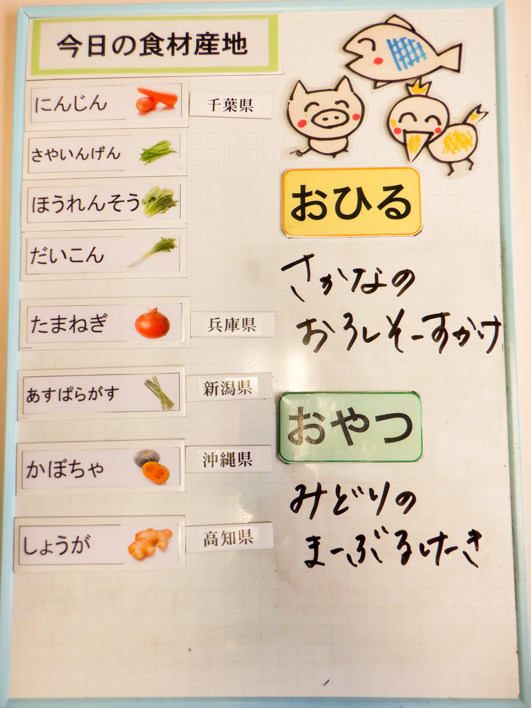 今日の食材産地
にんじん 千葉県
さやいんげん
ほうれんそう
だいこん
たまねぎ 兵庫県
あすぱらがす 新潟県
かぼちゃ 沖縄県
しょうが 高知県
おひる
さかなの
おろしそーすかけ
おやつ
みどりの
まーぶるけーき